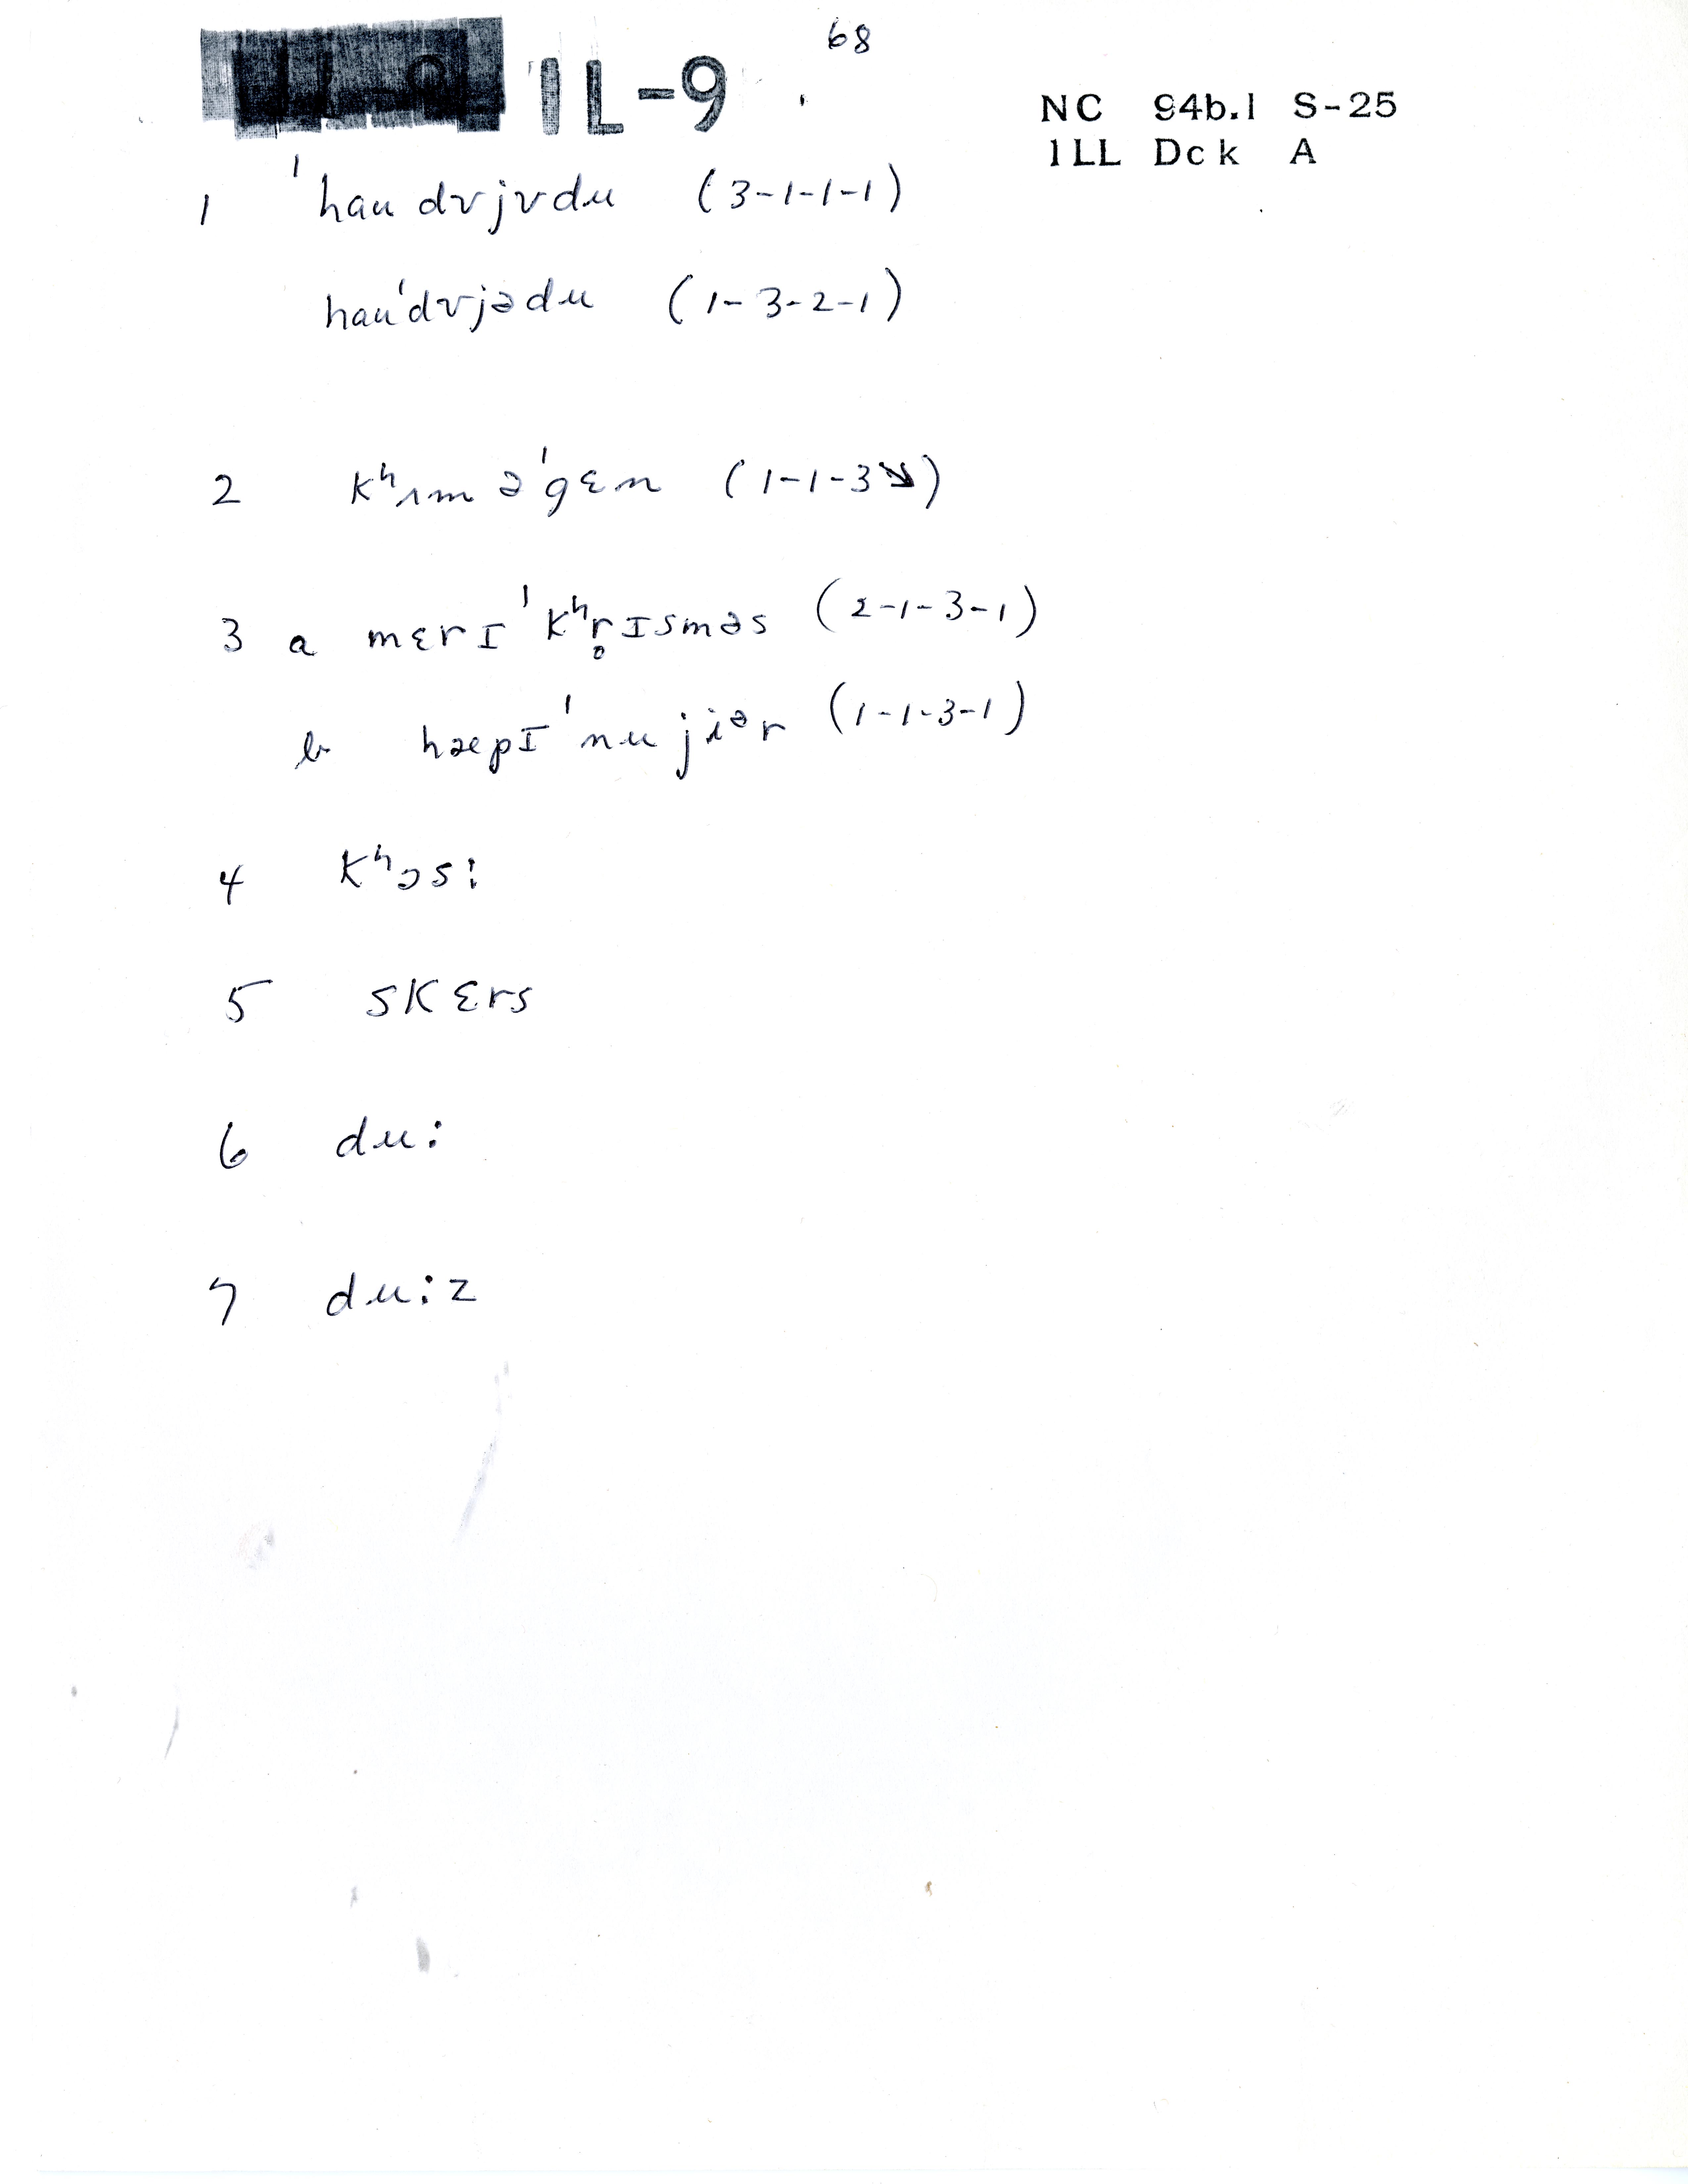 68
IL-9
NC 94b.1 S-25
ILL Dck A
1 ˈhau dʋjʋdu (3-1-1-1)
hauˈdʋjədu (1-3-2-1)
2 kʰʌm əˈgɛn (1-1-3↘)
3 a mɛrIˈkʰr̥Isməs (2-1-3-1)
b hæpIˈnu jiər (1-1-3-1)
4 kʰɔs:
5 skɛrs
6 du:
7 du:z